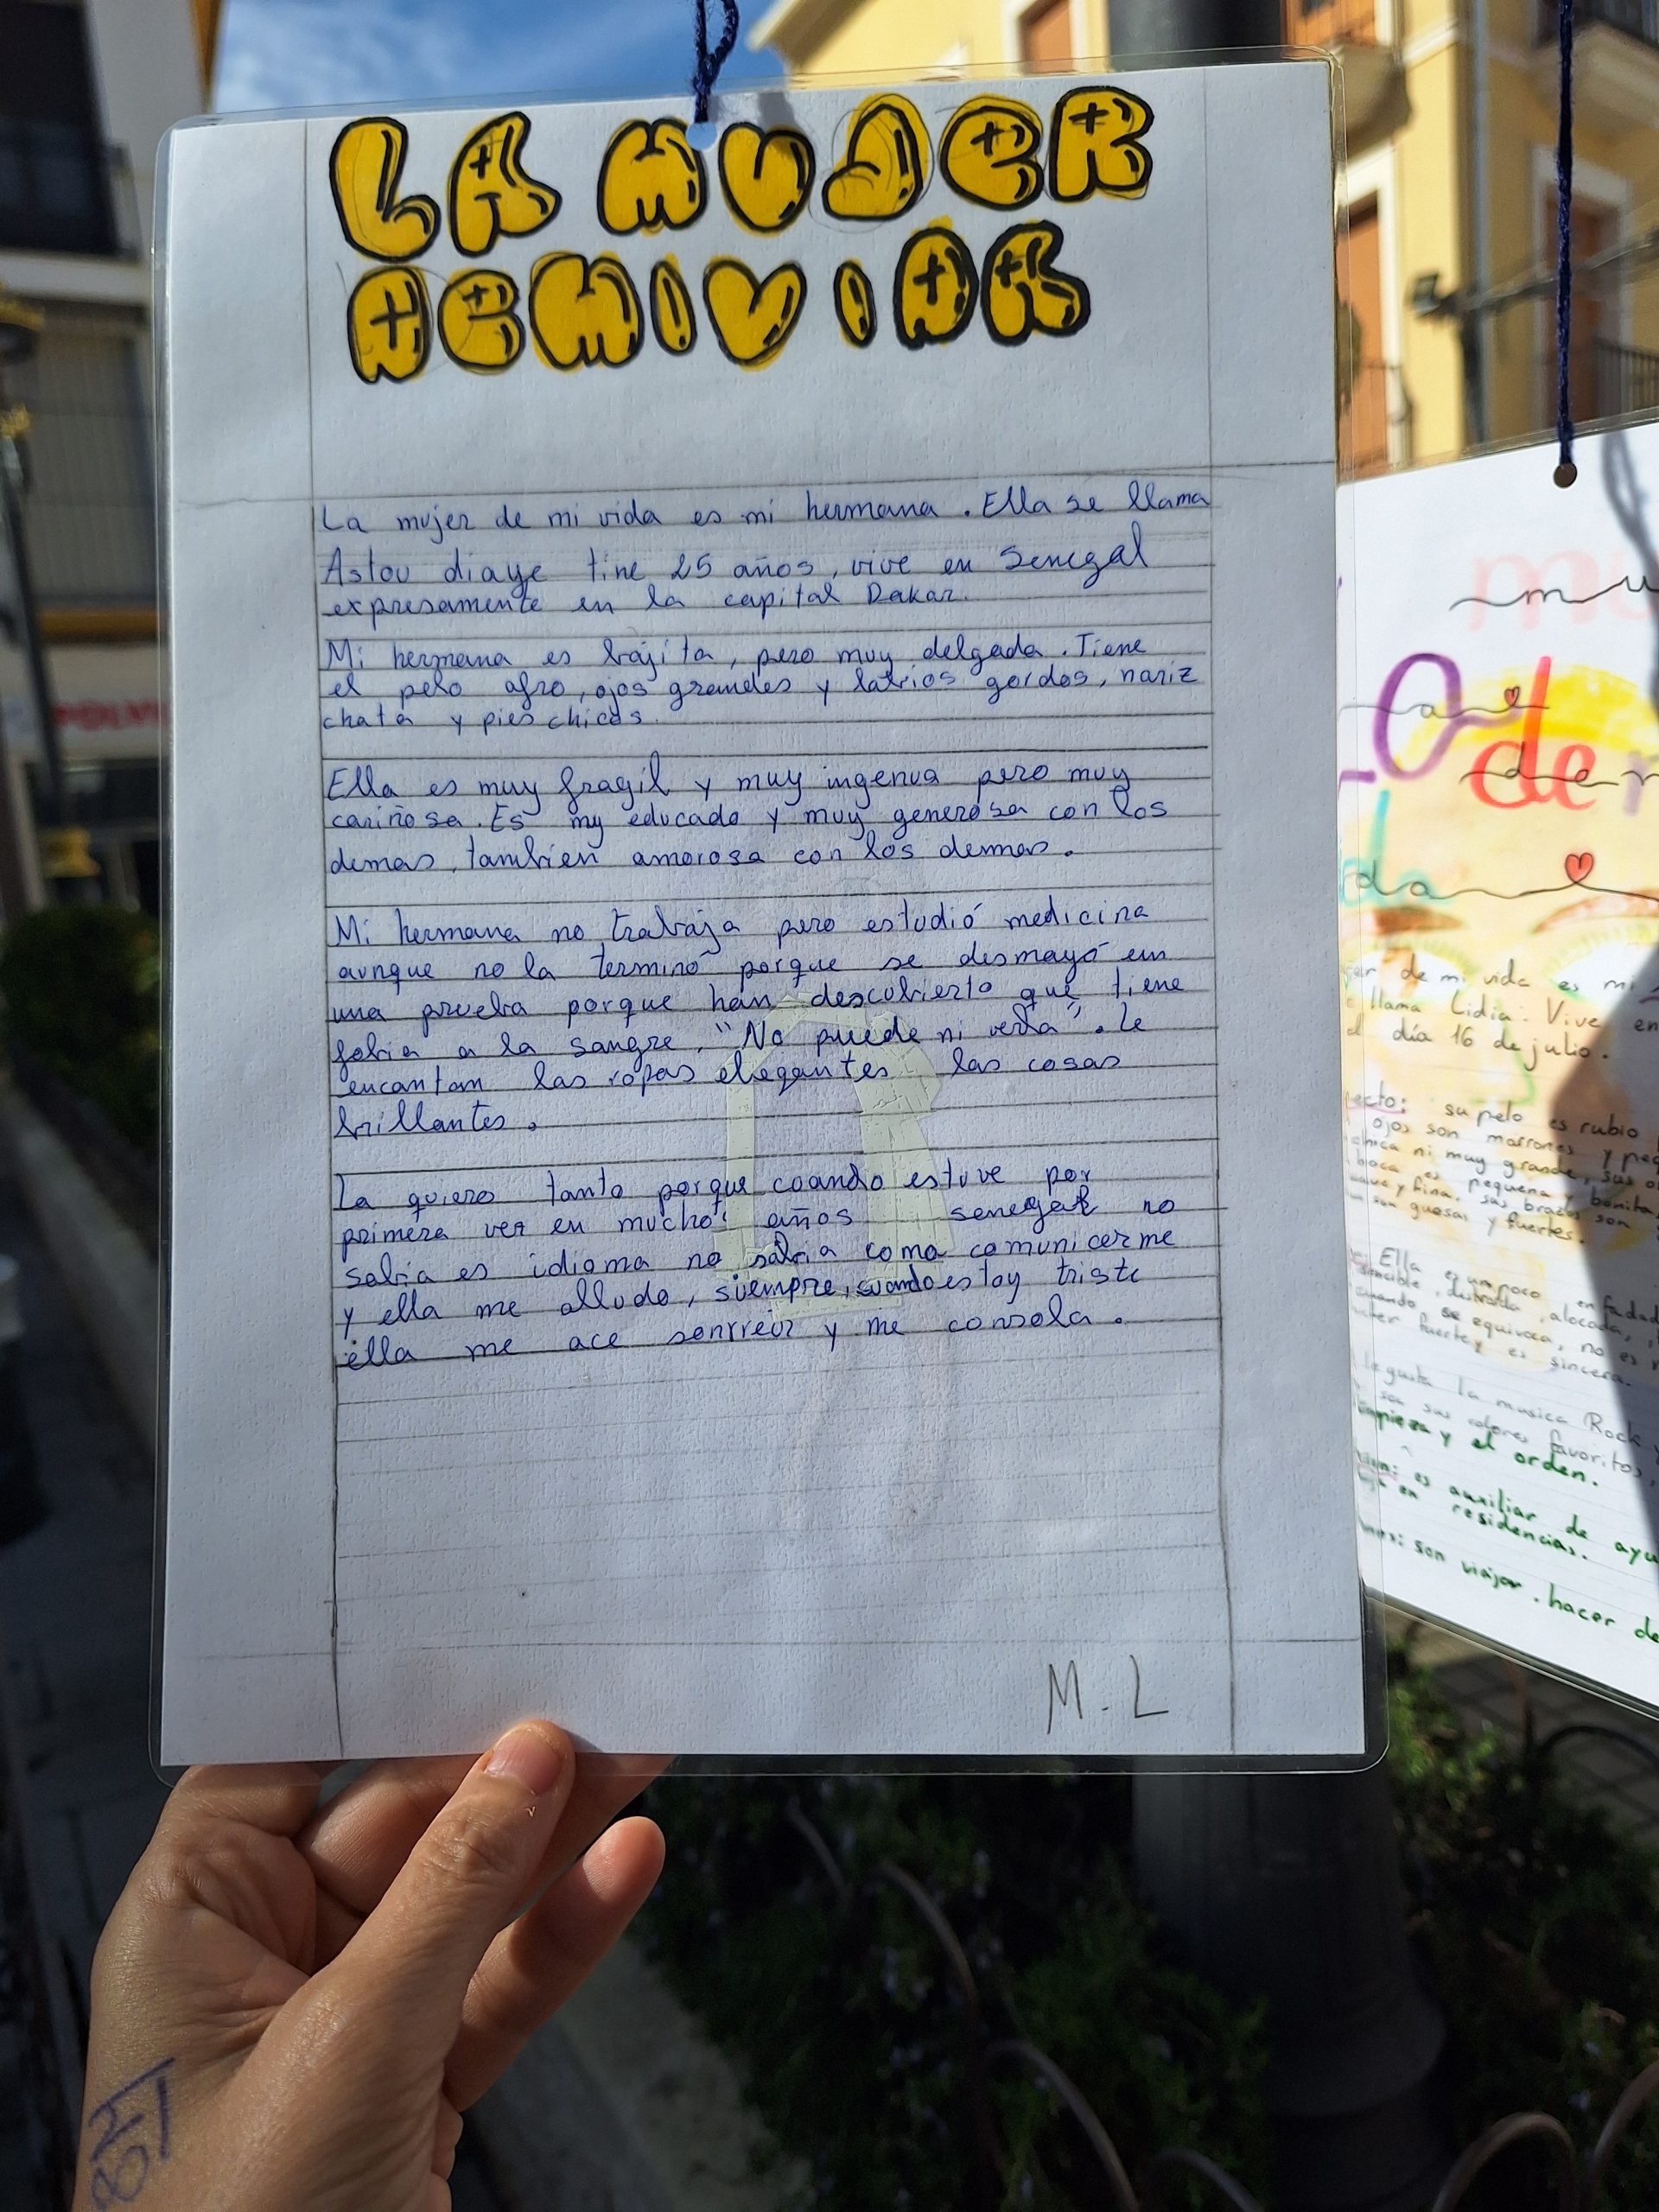 LA MUJER
DE MI VIDA
La mujer de mi vida es mi hermana. Ella se llama
Astou diaye tine 25 años, vive en Senegal
expresamente en la capital Dakar.
Mi hermana es bajita, pero muy delgada. Tiene
el pelo afro, ojos grandes y labios gordos, nariz
chata y pies chicos.
Ella es muy fragil y muy ingenua pero muy
cariñosa. Es my educado y muy generosa con los
demas, tambien amorosa con los demas.
Mi hermana no trabaja pero estudió medicina
aunque no la terminó porque se desmayó en
una prueba porque han descubierto que tiene
fobia a la sangre, "No puede ni verla". Le
encantan las ropas elegantes las cosas
brillantes.
La quiero tanto porque cuando estuve por
primera vez en mucho años senegal no
sabia es idioma no sabia como comunicarme
y ella me alludo, siempre, cuando estoy triste
ella me ace sonrreir y me consola.
M.L
mu
de
da
de mi vida es mi
llama Lidia. Vive en
el día 16 de julio.
su pelo es rubio
ojos son marrones y
ni muy grande, sus
boca es pequena y bonita,
y fina, sus brazos son
son guesas y fuertes.
Ella es un poco enfadad
sencible, distraida, alocada,
cuando se equivoca, no es
fuerte y es sincera.
le gusta la musica Rock y
son sus colores favoritos,
limpieza y el orden.
es auxiliar de ayu
en residencias.
son viajar. hacer de